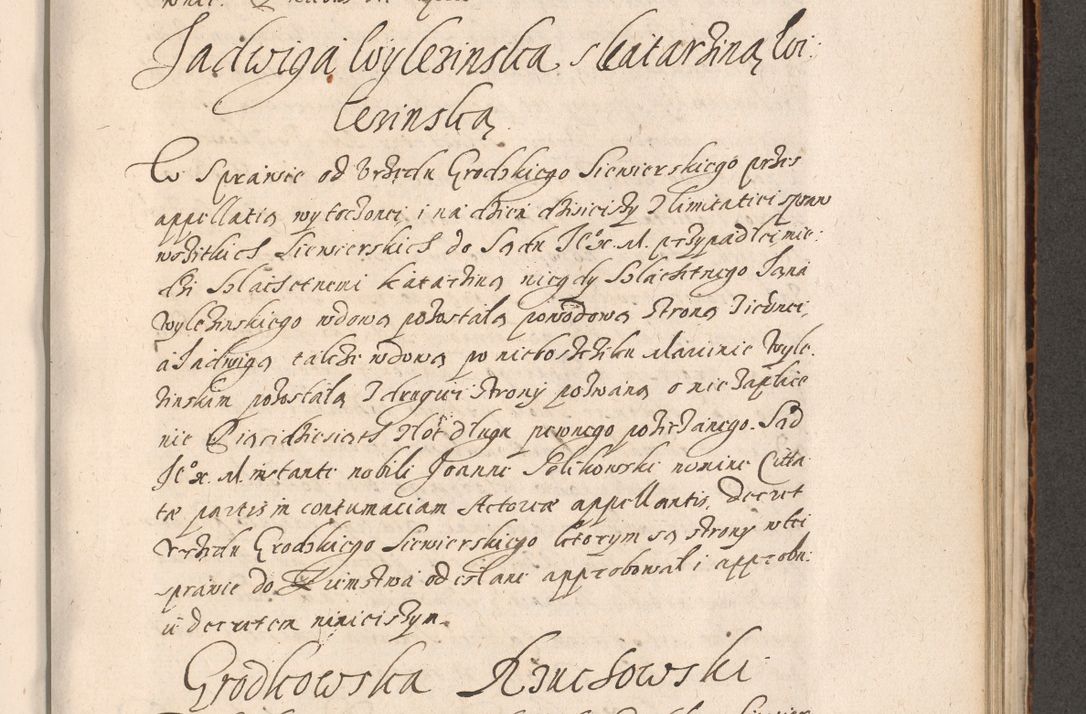 Jadwiga Wylezinska s Katarziną Wi
lezinską
W Sprawie od Urzędu Grodzkiego Siewierskiego przes
appellatią wytoczonei i na dzien dzisieiszy z limitatiei spraw
wszitkich Siewierskich do Sądu Je° x. M. przypadłei mie:
dzi Slachetnemi Katarziną niegdy Slachetnego Jana
Wylezinskiego wdową pozostałą powodową stroną z iednei,
a Jadwigą takze wdową po nieboszcziku Marcinie Wyle:
zinskim pozostałą z drugiei strony pozwaną o nie zaplace
nie Pięcidziesiąt złot długu pewnego pozyczanego. Sąd
Je° x. M. instante nobili Joanne Pelikowski nomine Citta
tæ partis in contumaciam Actoreæ appellantis, Decret
Urzędu Grodzkiego Siewierskiego ktorym są strony w tei
sprawie do Ziemstwa odesłane approbował i approbu:
ie decretem ninieiszym.
Grodkowska Rzuchowski